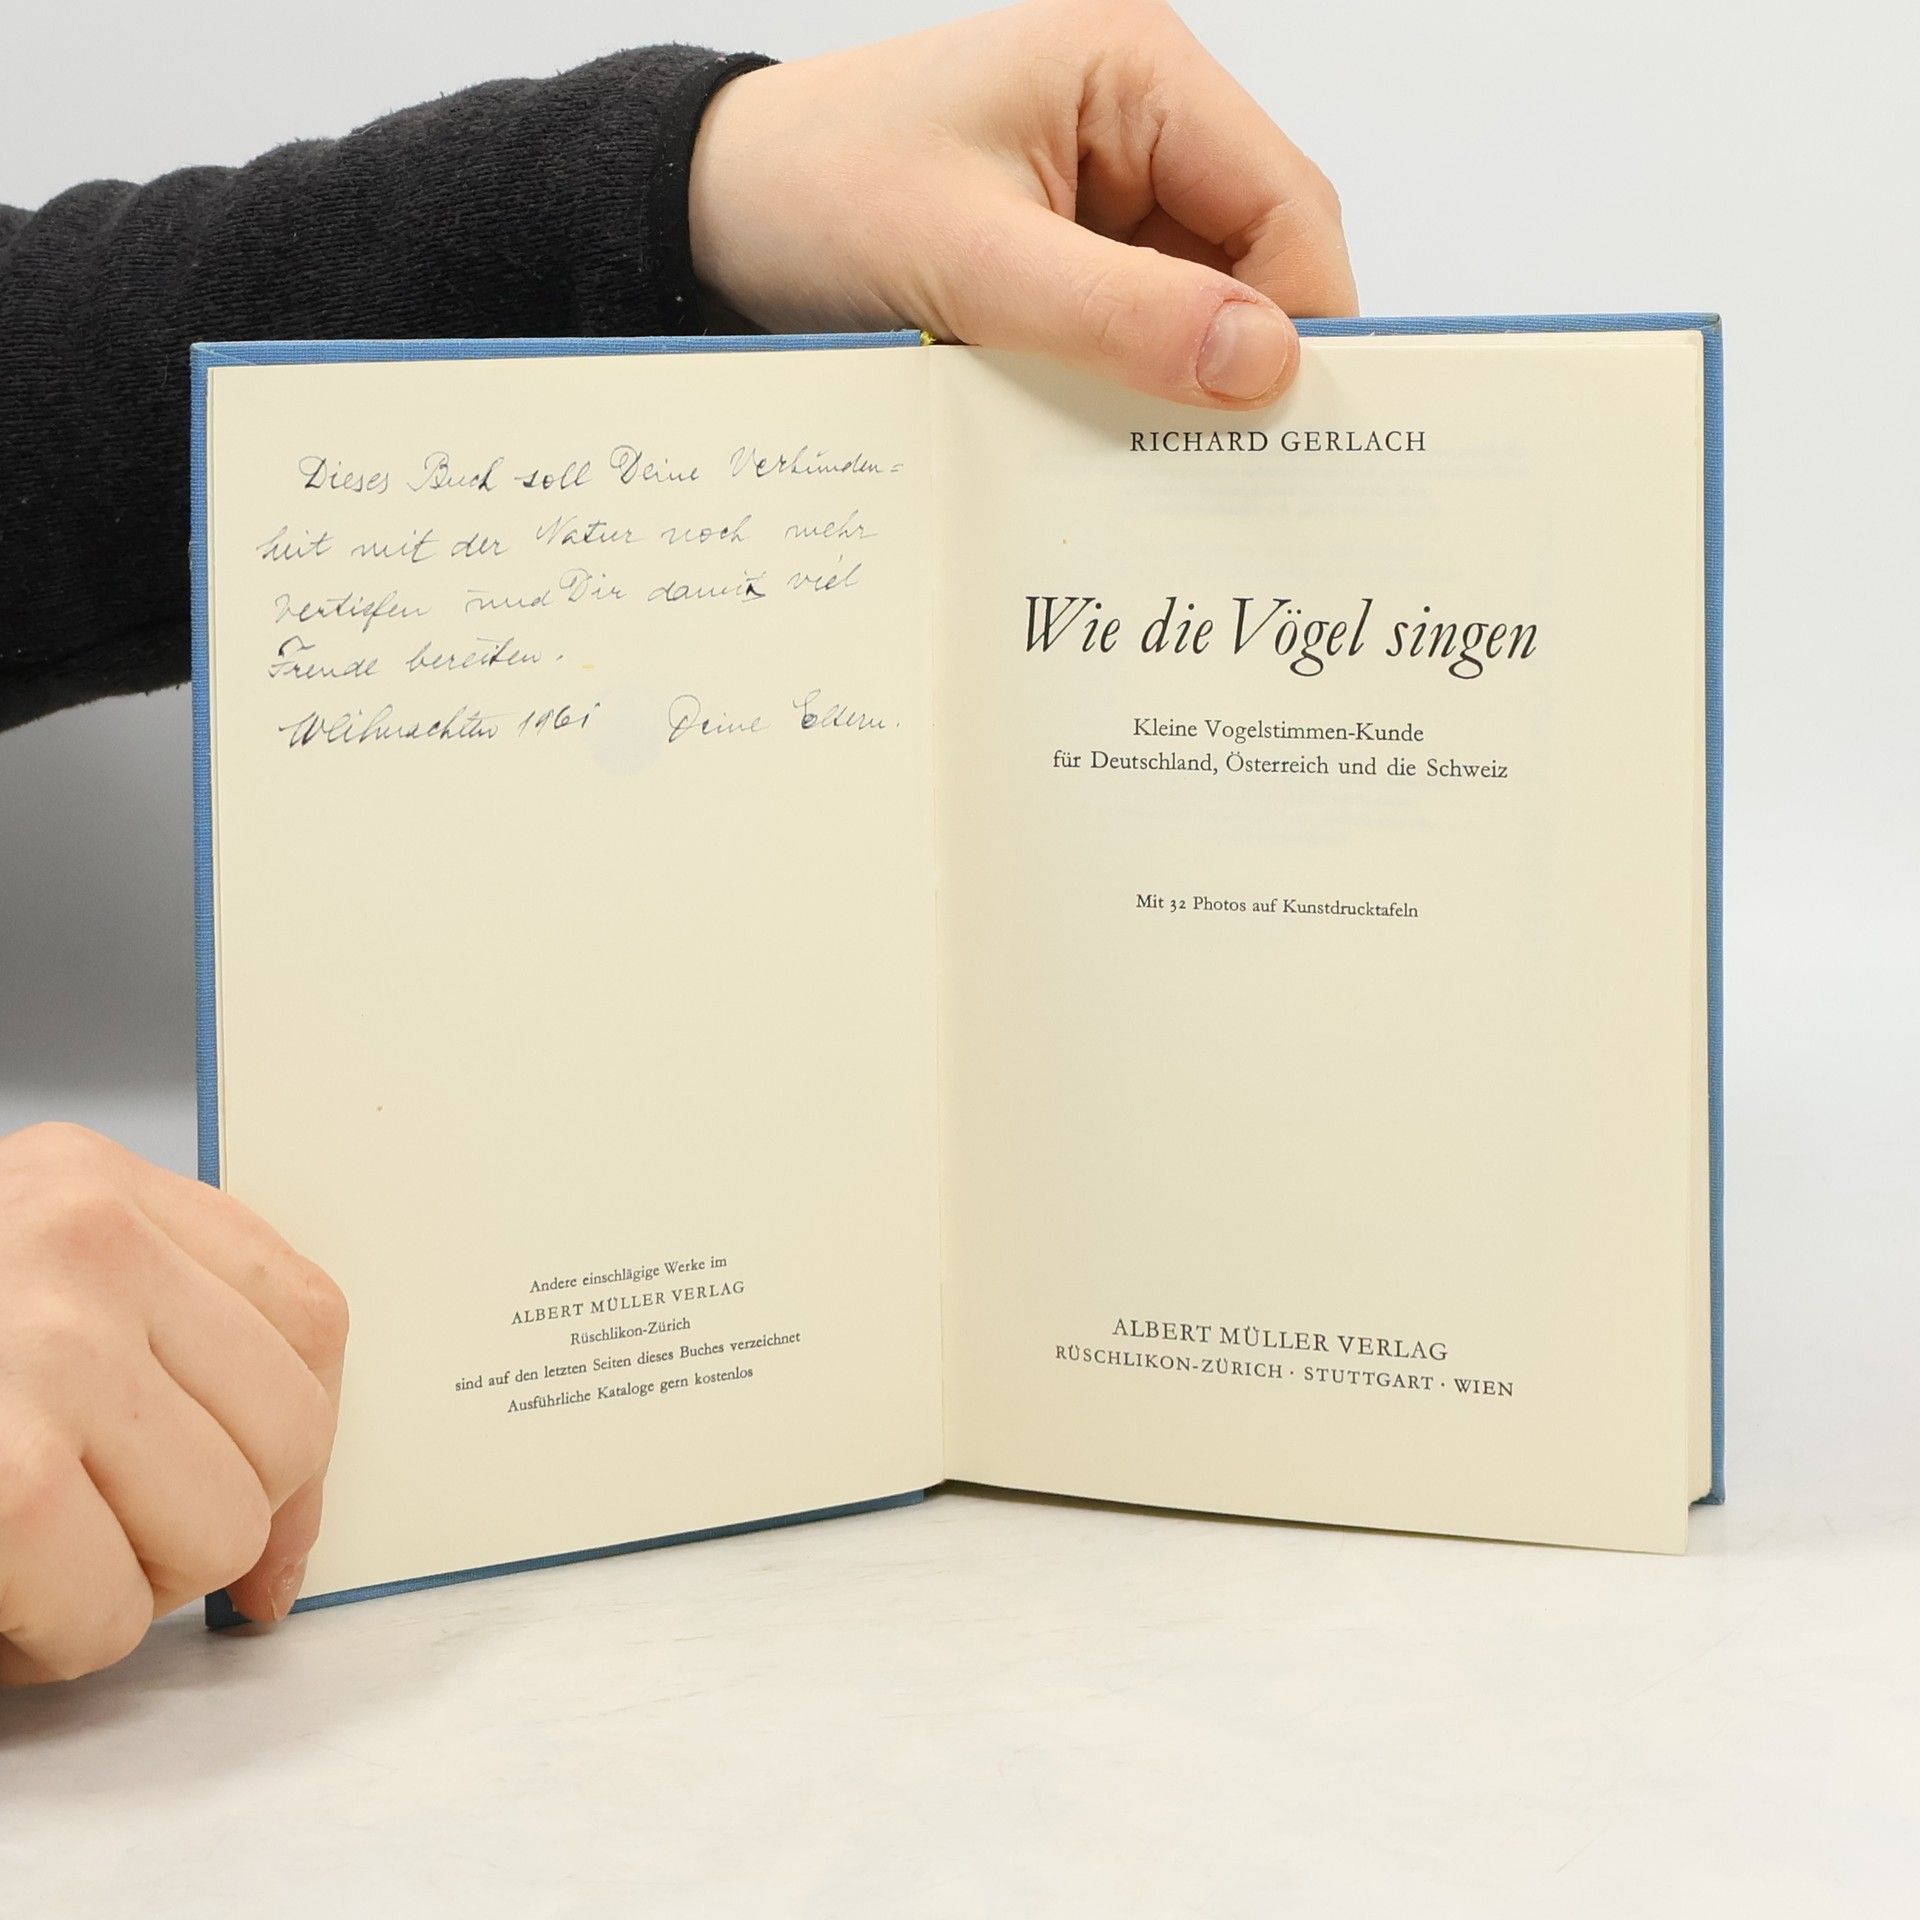 Dieses Buch soll Deine Verbunden=
heit mit der Natur noch mehr
vertiefen und Dir damit viel
Freude bereiten.
Weihnachten 1961 Deine Eltern.
Andere einschlägige Werke im
ALBERT MÜLLER VERLAG
Rüschlikon-Zürich
sind auf den letzten Seiten dieses Buches verzeichnet
Ausführliche Kataloge gern kostenlos
RICHARD GERLACH
Wie die Vögel singen
Kleine Vogelstimmen-Kunde
für Deutschland, Österreich und die Schweiz
Mit 32 Photos auf Kunstdrucktafeln
ALBERT MÜLLER VERLAG
RÜSCHLIKON-ZÜRICH · STUTTGART · WIEN